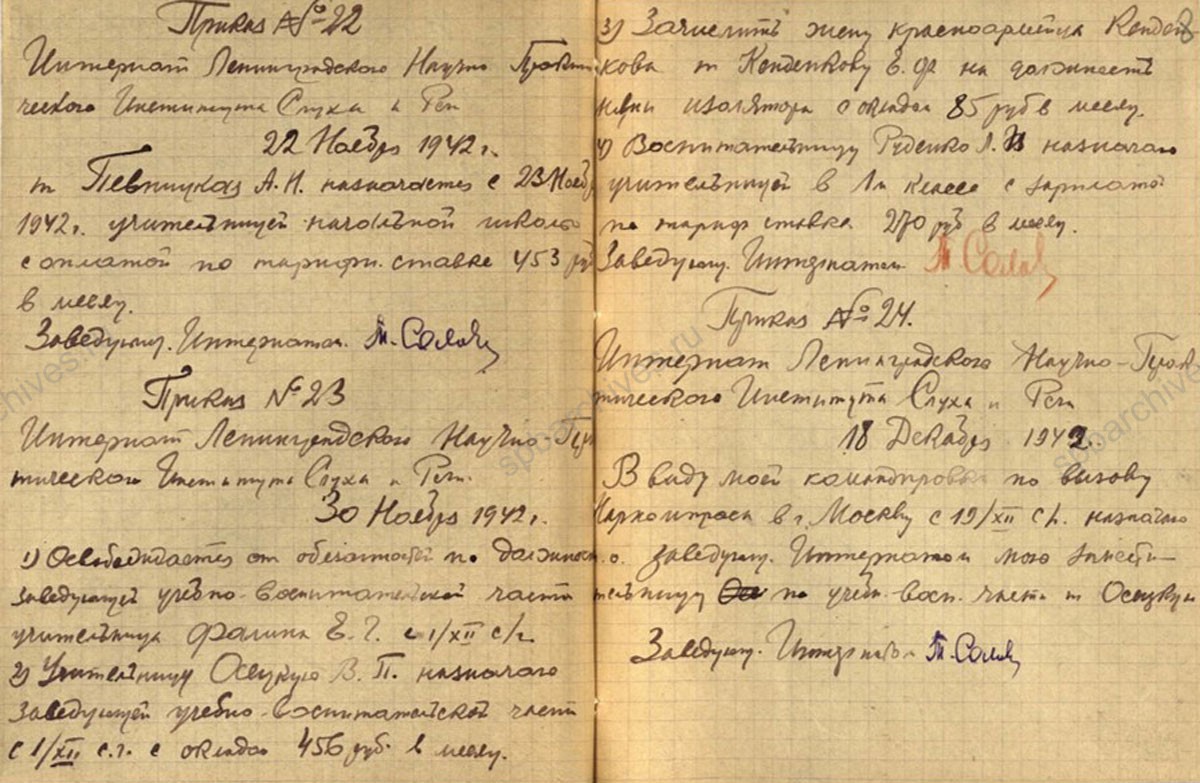 Приказ № 22
Интернат Ленинградского Научно Практи
ческого Института Слуха и Речи
22 Ноября 1942 г.
т Певницкая А. Н. назначается с 23 Нояб
1942 г. учительницей начальной школы
с оплатой по тарифн. ставке 453 руб
в месяц.
Заведующ. Интернатом. М. Солов
Приказ № 23
Интернат Ленинградского Научно-Прак
тического Института Слуха и Речи.
30 Ноября 1942 г.
1) Освобождается от обязанностей по должност
заведующей учебно-воспитательской части
учительница Фалина Е. Г. с 1/XII с/г.
2) Учительницу Осецкую В. П. назначаю
заведующей учебно-воспитательской части
с 1/XII с.г. с окладом 456 руб. в месяц.
3) Зачислить жену красноармейца Конден
кова т Конденкову Е. Ф на должность
няни изолятора с окладом 85 руб в месяц.
4) Воспитательницу Руденко Л. В назначаю
учительницей в 1м классе с зарплатой
по тариф ставке 270 руб в месяц.
Заведующ. Интернатом М. Солов
Приказ № 24.
Интернат Ленинградского Научно-Прак
тического Института Слуха и Речи
18 Декабря 1942.
В виду моей командировки по вызову
Наркомпроса в г. Москву с 19/XII с/г. назначаю
о. заведующ. Интернатом мою замести-
тельницу по учебн-восп. части т Осецкую
Заведующ. Интернатом М. Солов
spbarchives.ru